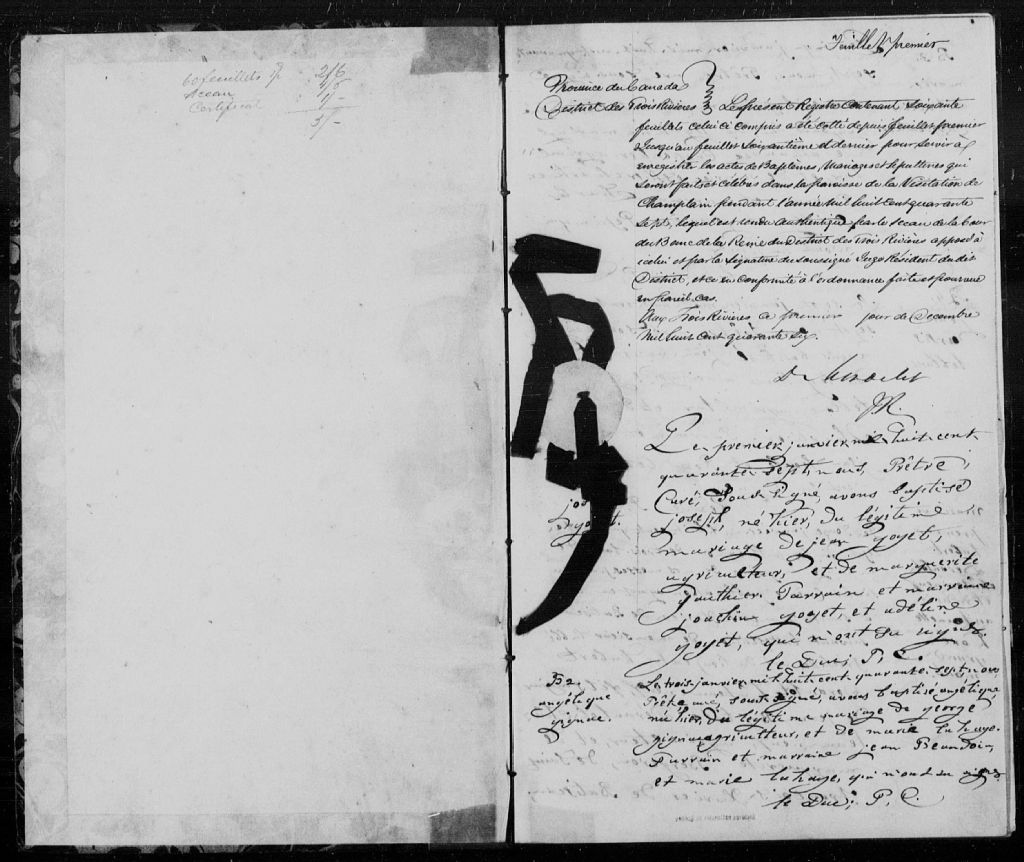 60 feuillets 2/6
Sceau
Certificat 1/-
5/-
Feuillet premier
Province du Canada
District des Trois Rivières } Le présent Registre contenant soixante
feuillets celui ci compris a été cotté depuis feuillet premier
jusqu'au feuillet soixantième et dernier pour servir à
enregistrer les actes de Baptêmes, Mariages et sépultures qui
seront faits et célébrés dans la paroisse de la Visitation de
Champlain pendant l'année Mil huit cent quarante
sept, lequel est rendu authentique par le sceau de la Cour
du Banc de la Reine du District des Trois Rivières apposé à
icelui et par la signature du soussigné Juge Résident du dit
District, et ce en conformité à l'ordonnance faite et pourvue
en pareil cas.
Aux Trois Rivières ce premier jour de Decembre
Mil huit cent quarante six.
J.R.
Le premier janvier mil huit cent
quarante sept, nous, Prêtre,
Curé, sousigné, avons baptisé
joseph, né hier, du légitime
mariage de jean goyet,
agriculteur, et de marguerite
gauthier. Parrain et marraine
joachim goyet, et adéline
goyet, qui n'ont su signer.
le Duc, P. C.
jos
goyet.
B 2.
angélique
gignac.
Le trois janvier mil huit cent quarante sept, nous
Prêtre curé, sousigné, avons baptisé angélique
née hier, du légitime mariage de george
gignac agriculteur, et de marie lahaye.
Parrain et marraine jean Beaudoin,
et marie lahaye, qui n'ont su signer
le Duc, P. C.